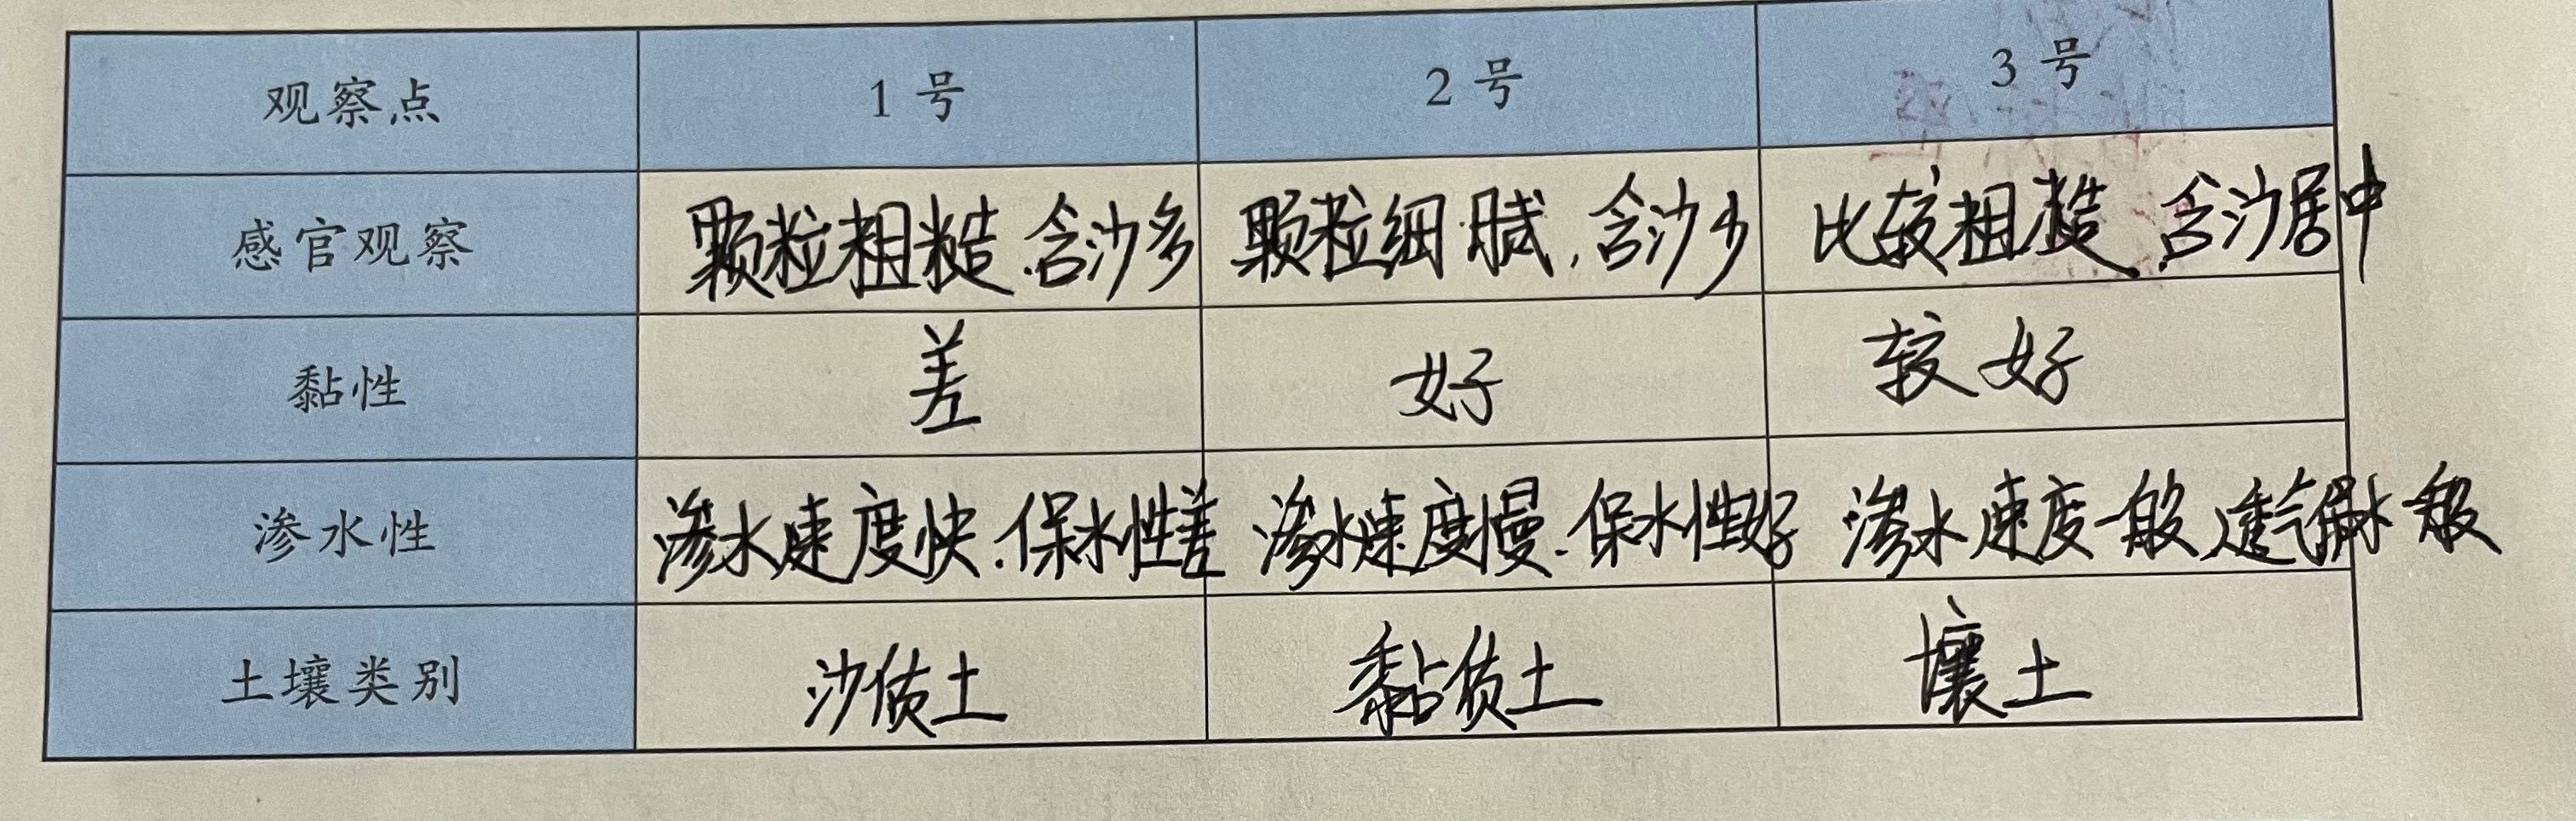 观察点 1号 2号 3号
感官观察 颗粒粗糙.含沙多 颗粒细腻,含沙少 比较粗糙.含沙居中
黏性 差 好 较好
渗水性 渗水速度快.保水性差 渗水速度慢.保水性好 渗水速度一般 透气保水一般
土壤类别 沙质土 黏质土 壤土